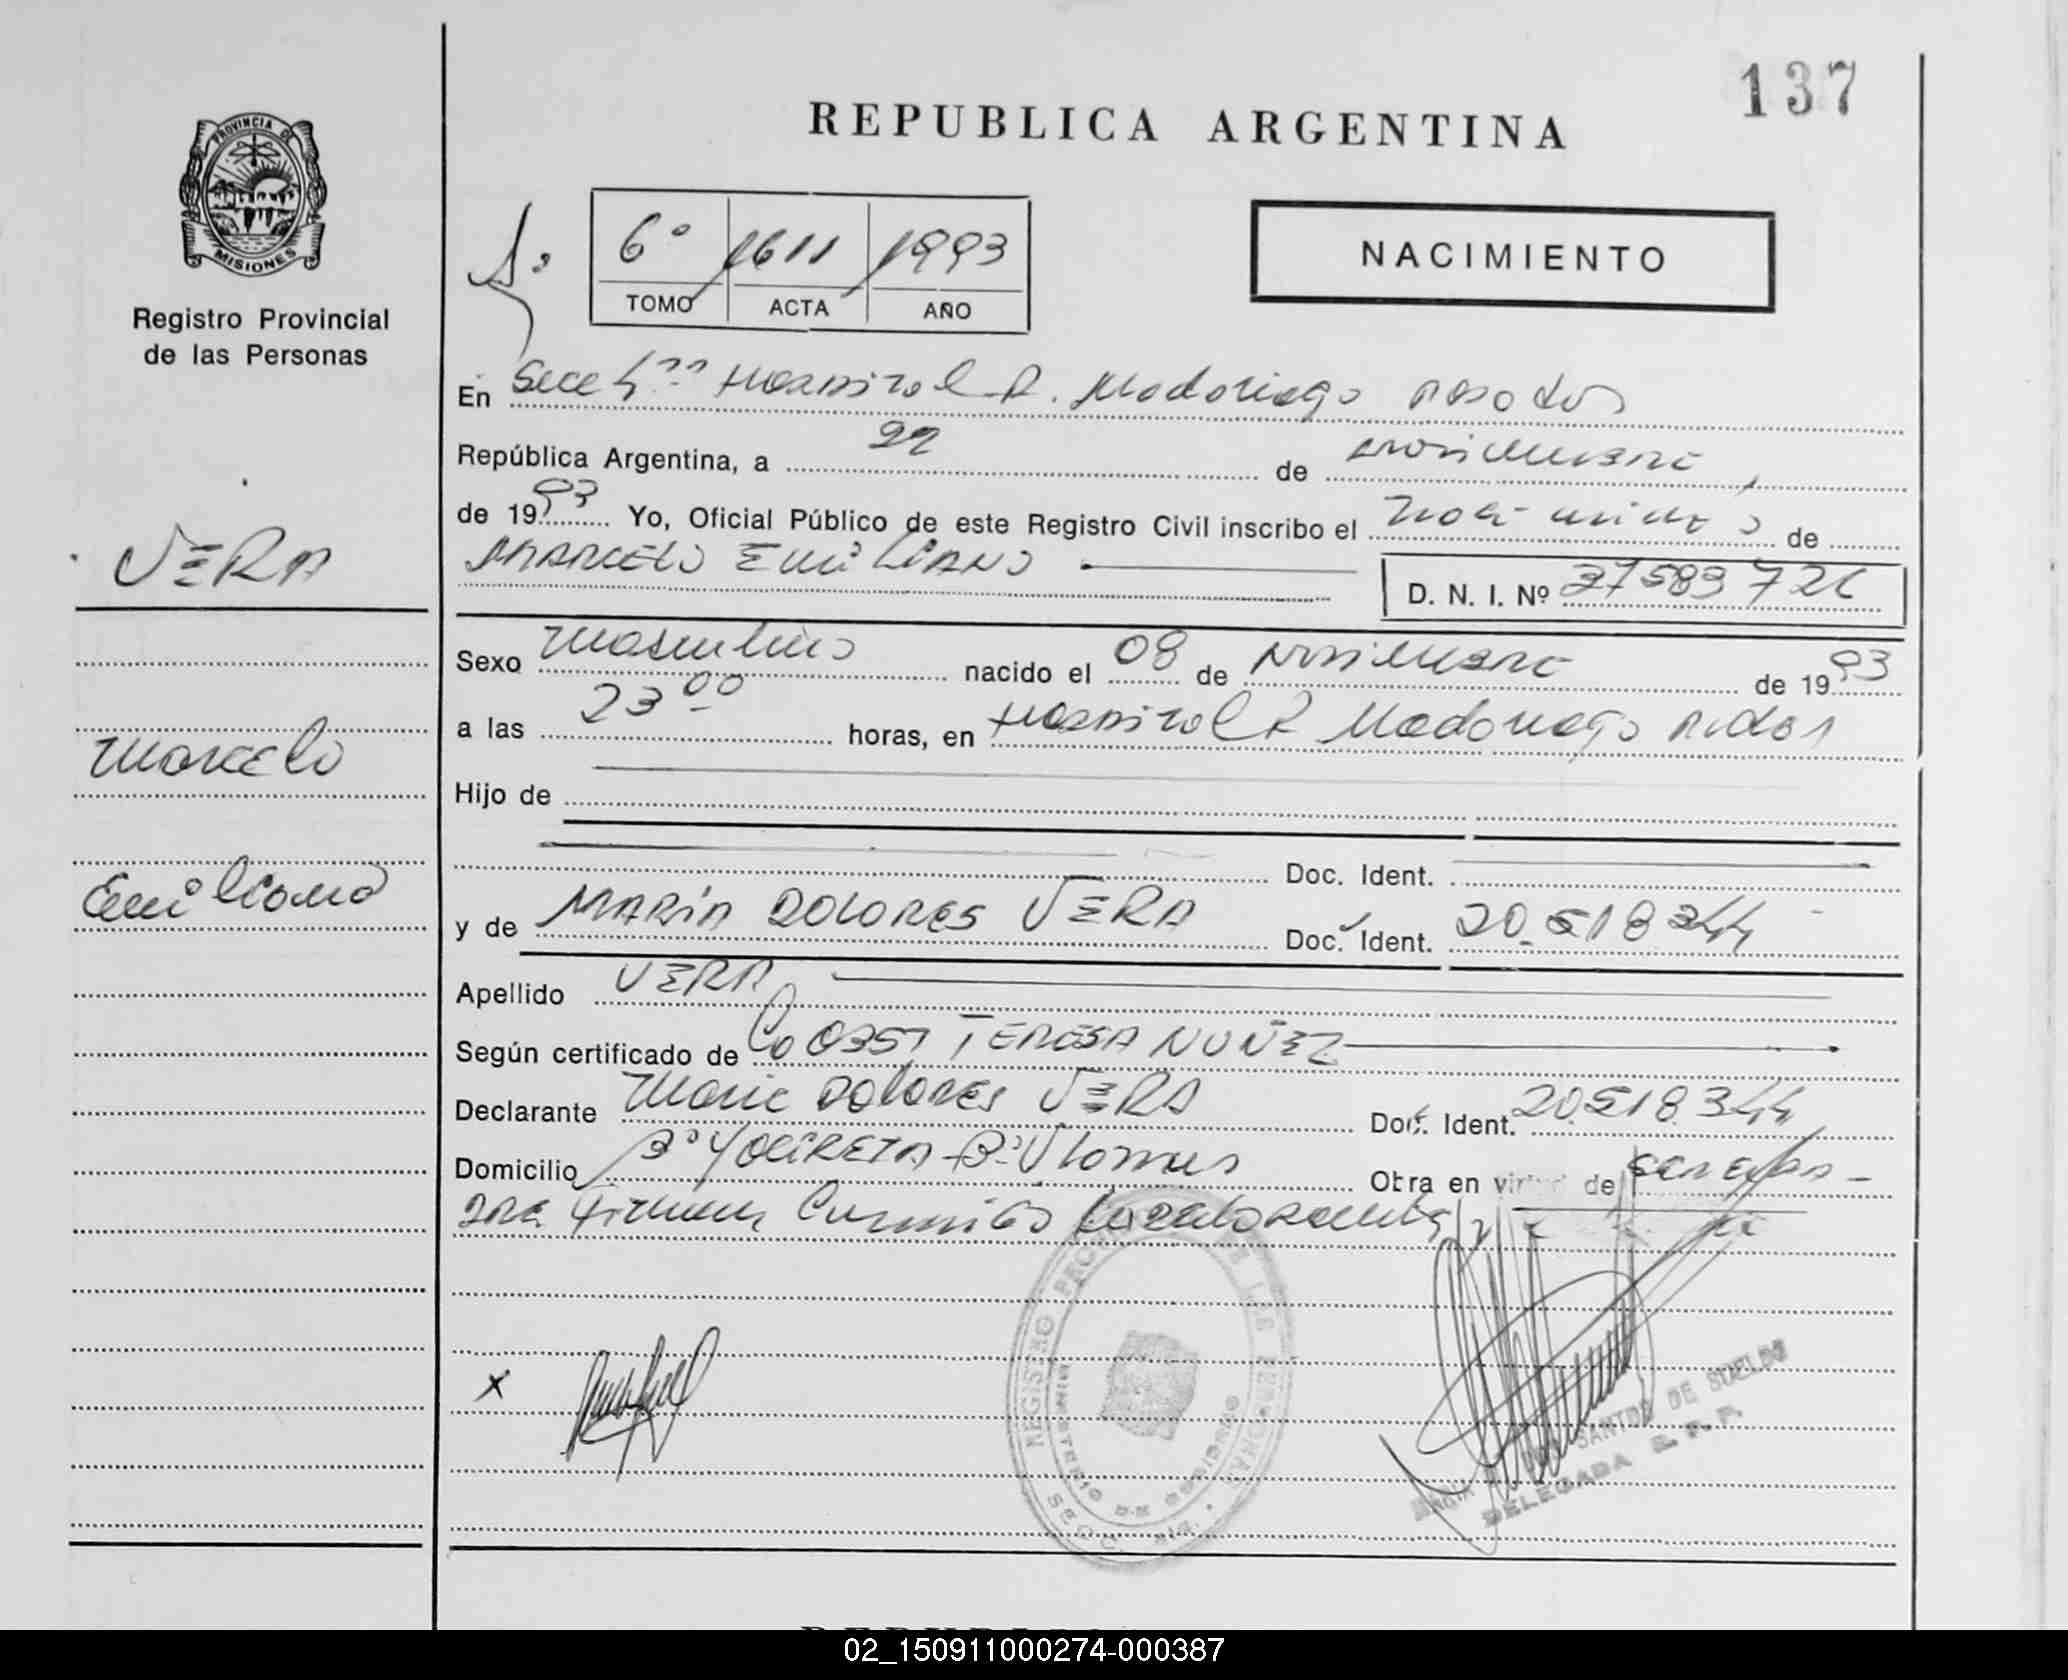 137
REPUBLICA ARGENTINA
PROVINCIA DE
MISIONES
Registro Provincial
de las Personas
6º 1611 1993
TOMO ACTA AÑO
NACIMIENTO
En Secc Hospital R. Madariaga
República Argentina, a 22 de noviembre
de 1993 Yo, Oficial Público de este Registro Civil inscribo el nacimiento de
MARCELO EMILIANO
D. N. I. Nº
VERA
Sexo masculino nacido el 08 de noviembre de 1993
a las 23 00 horas, en Hospital R Madariaga
Marcelo
Hijo de
Doc. Ident.
Emiliano
y de MARIA DOLORES VERA Doc. Ident. 20.518.344
Apellido VERA
Según certificado de 0357 TERESA NUÑEZ
Declarante Maria DOLORES VERA Doc. Ident. 20.518.344
Domicilio Bº YACIRETA Otra en virtud de
x
REGISTRO DE LAS PERSONAS
MINISTERIO DE GOBIERNO
SECC.
SANTOS DE SUELDO
DELEGADA R. P. P.
02_150911000274-000387